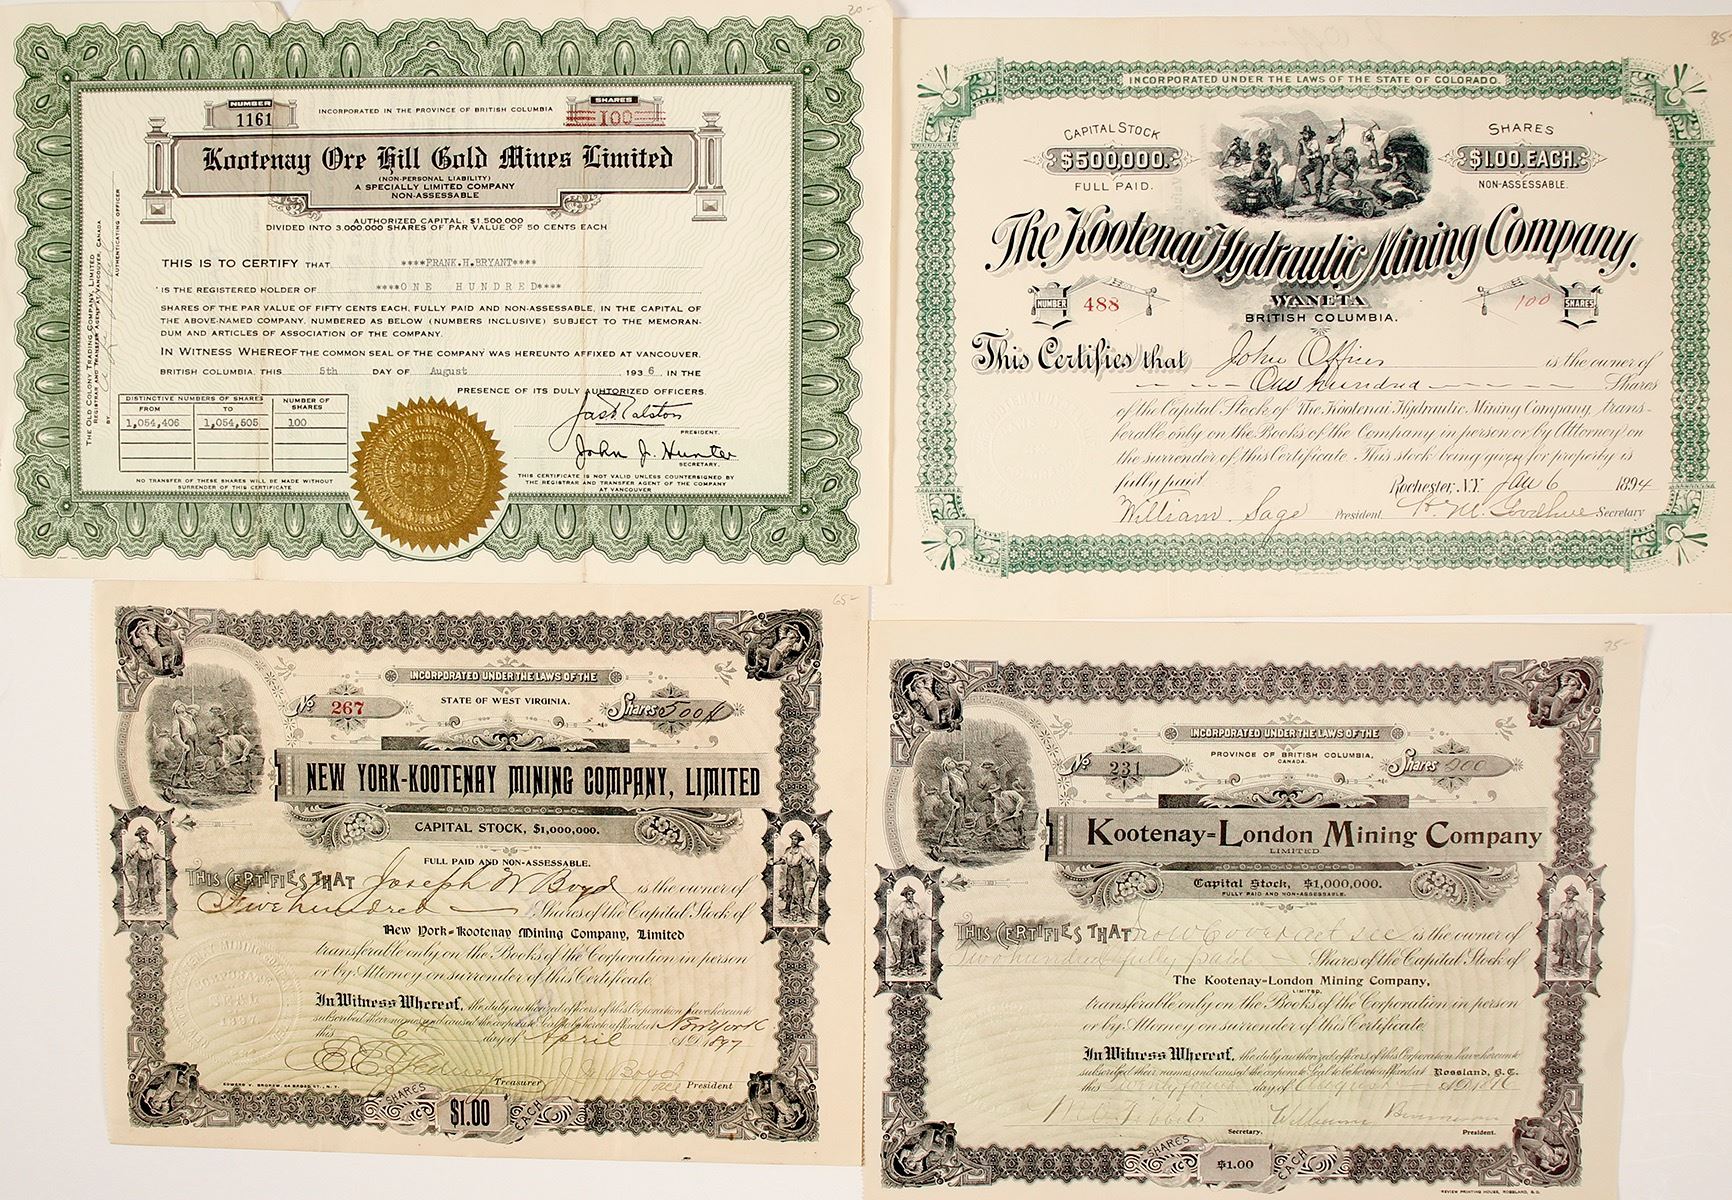 20-
NUMBER
1161
INCORPORATED IN THE PROVINCE OF BRITISH COLUMBIA
SHARES
100
Kootenay Ore Hill Gold Mines Limited
(NON-PERSONAL LIABILITY)
A SPECIALLY LIMITED COMPANY
NON-ASSESSABLE
AUTHORIZED CAPITAL, $1,500,000
DIVIDED INTO 3,000,000 SHARES OF PAR VALUE OF 50 CENTS EACH
THIS IS TO CERTIFY THAT ****FRANK.H.BRYANT****
IS THE REGISTERED HOLDER OF ****ONE HUNDRED****
SHARES OF THE PAR VALUE OF FIFTY CENTS EACH, FULLY PAID AND NON-ASSESSABLE, IN THE CAPITAL OF
THE ABOVE-NAMED COMPANY, NUMBERED AS BELOW (NUMBERS INCLUSIVE) SUBJECT TO THE MEMORAN-
DUM AND ARTICLES OF ASSOCIATION OF THE COMPANY.
IN WITNESS WHEREOF THE COMMON SEAL OF THE COMPANY WAS HEREUNTO AFFIXED AT VANCOUVER,
BRITISH COLUMBIA, THIS 5th DAY OF August 1936 IN THE
PRESENCE OF ITS DULY AUTHORIZED OFFICERS.
DISTINCTIVE NUMBERS OF SHARES
NUMBER OF SHARES
FROM TO
1,054,406 1,054,505 100
Jas Ralston
PRESIDENT.
John J. Hunter
SECRETARY.
NO TRANSFER OF THESE SHARES WILL BE MADE WITHOUT
SURRENDER OF THIS CERTIFICATE
THIS CERTIFICATE IS NOT VALID UNLESS COUNTERSIGNED BY
THE REGISTRAR AND TRANSFER AGENT OF THE COMPANY
AT VANCOUVER
THE OLD COLONY TRADING COMPANY, LIMITED
REGISTRAR AND TRANSFER AGENT AT VANCOUVER, CANADA
BY
AUTHENTICATING OFFICER
85-
INCORPORATED UNDER THE LAWS OF THE STATE OF COLORADO.
CAPITAL STOCK
$500,000.
FULL PAID.
SHARES
$1.00. EACH.
NON-ASSESSABLE.
The Kootenai Hydraulic Mining Company.
NUMBER 488
WANETA
BRITISH COLUMBIA.
100 SHARES
This Certifies that John Offin is the owner of
One hundred Shares
of the Capital Stock of The Kootenai Hydraulic Mining Company, trans-
ferable only on the Books of the Company in person or by Attorney on
the surrender of this Certificate. This stock being given for property is
fully paid.
Rochester, N.Y. Jan 6 1894
William Sage President. Secretary
65-
INCORPORATED UNDER THE LAWS OF THE
STATE OF WEST VIRGINIA.
No 267
Shares 500
NEW YORK-KOOTENAY MINING COMPANY, LIMITED
CAPITAL STOCK, $1,000,000.
FULL PAID AND NON-ASSESSABLE.
THIS CERTIFIES THAT Joseph W Boyd is the owner of
Five hundred Shares of the Capital Stock of
New York-Kootenay Mining Company, Limited
transferable only on the Books of the Corporation in person
or by Attorney on surrender of this Certificate.
In Witness Whereof, the duly authorized officers of this Corporation have hereunto
subscribed their names and caused the corporate Seal to be hereto affixed at New York
this 6 day of April A.D. 1897
Treasurer J W Boyd Vice President
EDWARD V. BROKAW, 64 BROAD ST., N.Y.
SHARES $1.00 EACH
75-
INCORPORATED UNDER THE LAWS OF THE
PROVINCE OF BRITISH COLUMBIA,
CANADA.
No 231
Shares 200
Kootenay-London Mining Company
LIMITED
Capital Stock, $1,000,000.
FULLY PAID AND NON-ASSESSABLE.
THIS CERTIFIES THAT is the owner of
Two hundred fully paid Shares of the Capital Stock of
The Kootenay-London Mining Company,
LIMITED,
transferable only on the Books of the Corporation in person
or by Attorney on surrender of this Certificate.
In Witness Whereof, the duly authorized officers of this Corporation have hereunto
subscribed their names and caused the corporate Seal to be hereto affixed at Rossland, B.C.
this twenty fourth day of August A.D. 1896
Secretary. President.
SHARES $1.00 EACH
REVIEW PRINTING HOUSE, ROSSLAND, B.C.